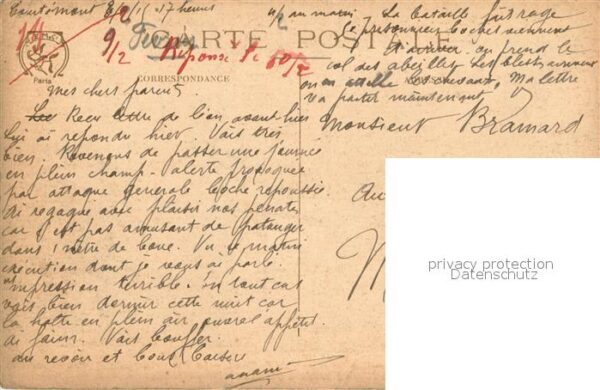 Courtémont 8/2/15 17 heures
1/1
8/2
9/2
Réponse le 60/2
CARTE POSTALE
Paris
CORRESPONDANCE
4/2 au matin La bataille fait rage
prisonniers boches viennent
d'arriver. on prend le
col des abeilles les blessés arrivent
on attelle les chevaux, Ma lettre
va partir maintenant.
Monsieur Bramard
Mes chers parents
Reçu lettre de Lion avant hier
lui ai répondu hier. Vais très
bien. Revenons de passer une journée
en plein champ - alerte provoquée
par attaque générale boche repoussée
Ai regagné avec plaisir nos pénates
car c'est pas amusant de patauger
dans 1 mètre de boue. Vu ce matin
exécution dont je vous ai parlé
impression terrible. En tout cas
vais bien dormir cette nuit car
la halte en plein air ouvre l'appétit
de faim. Vais bouffer
au revoir et bons baisers
privacy protection
Datenschutz